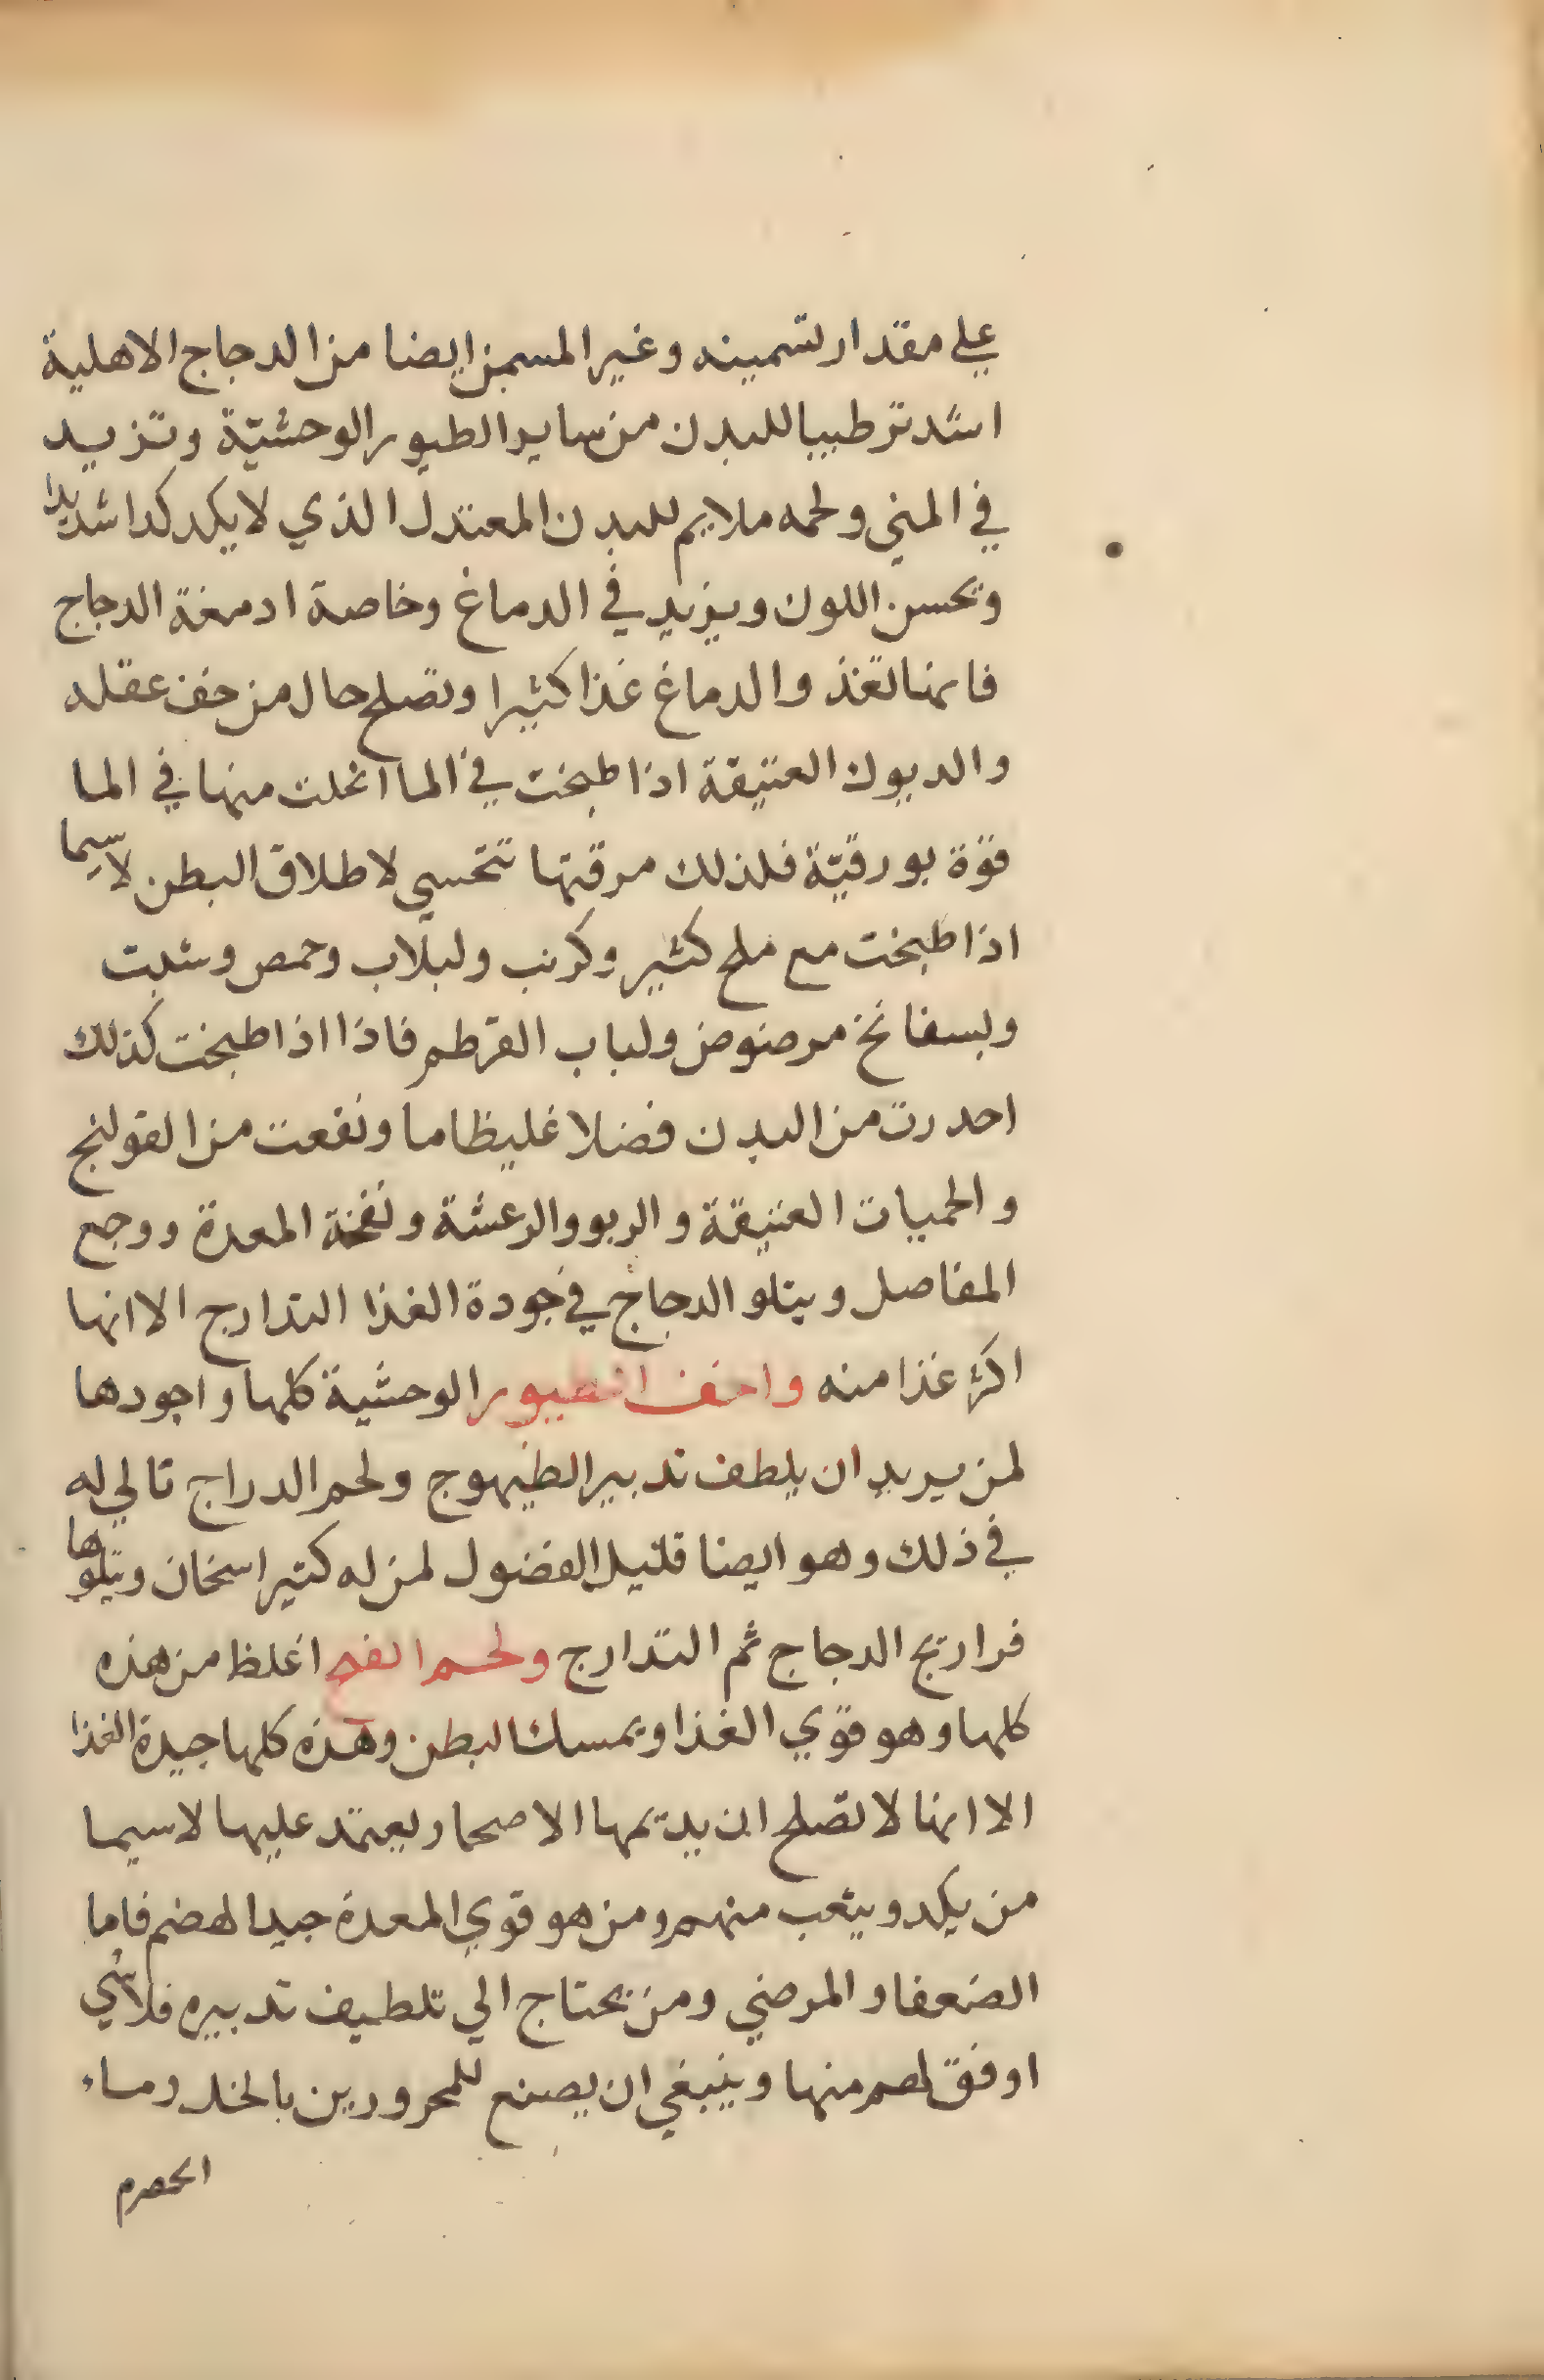 علي مقدار تسمينه وغير المسمن ايضا من الدجاج الاهلية
اشد ترطيبا للبدن من ساير الطيور الوحشيّة وتزيد
في المني ولحمه ملايم للبدن المعتدل الذي لا يكد كدا شديدا
ويحسن اللون ويزيد في الدماغ وخاصة ادمغة الدجاج
فانها تغذوا الدماغ غذا كثيرا وتصلح حال من خف عقله
والديوك العتيقة اذا طبخت في الما انحلت منها في الما
قوّة بورقيّة فلذلك مرقتها تتحسي لاطلاق البطن لاسيما
اذا طبخت مع ملح كثير وكرنب ولبلاب وحمص وشبت
وبسفانخ مرضوض ولباب القرطم فاذا اذا طبخت كذلك
احدرت من البدن فضلا غليظا ما ونفعت من القولنج
والحميات العتيقة والربو والرعشة ونفخة المعدة ووجع
المفاصل ويتلو الدجاج في جودة الغذا التدارج الا انها
اكثر غذا منه واخف الطيور الوحشية كلها واجودها
لمن يريد ان يلطف تدبير الطيهوج ولحم الدراج تالي له
في ذلك وهو ايضا قليل الفضول لمن له كثير اسخان ويتلوها
فراريج الدجاج ثم التدارج ولحم القبج اغلظ من هذه
كلها وهو قوي الغذا ويمسك البطن وهذه كلها جيدة الغذا
الا انها لا تصلح ان يديمها الاصحا ويعتمد عليها لاسيما
من يكد ويتعب منهم ومن هو قوي المعدة جيد الهضم فاما
الضعفا والمرضي ومن يحتاج الي تلطيف تدبيره فلا شي
اوفق لهم منها وينبغي ان يصنع للمحرورين بالخل وماء
الحصرم